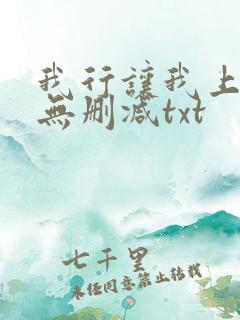 我行讓我上
無刪減txt
七千里
未经同意禁止转载